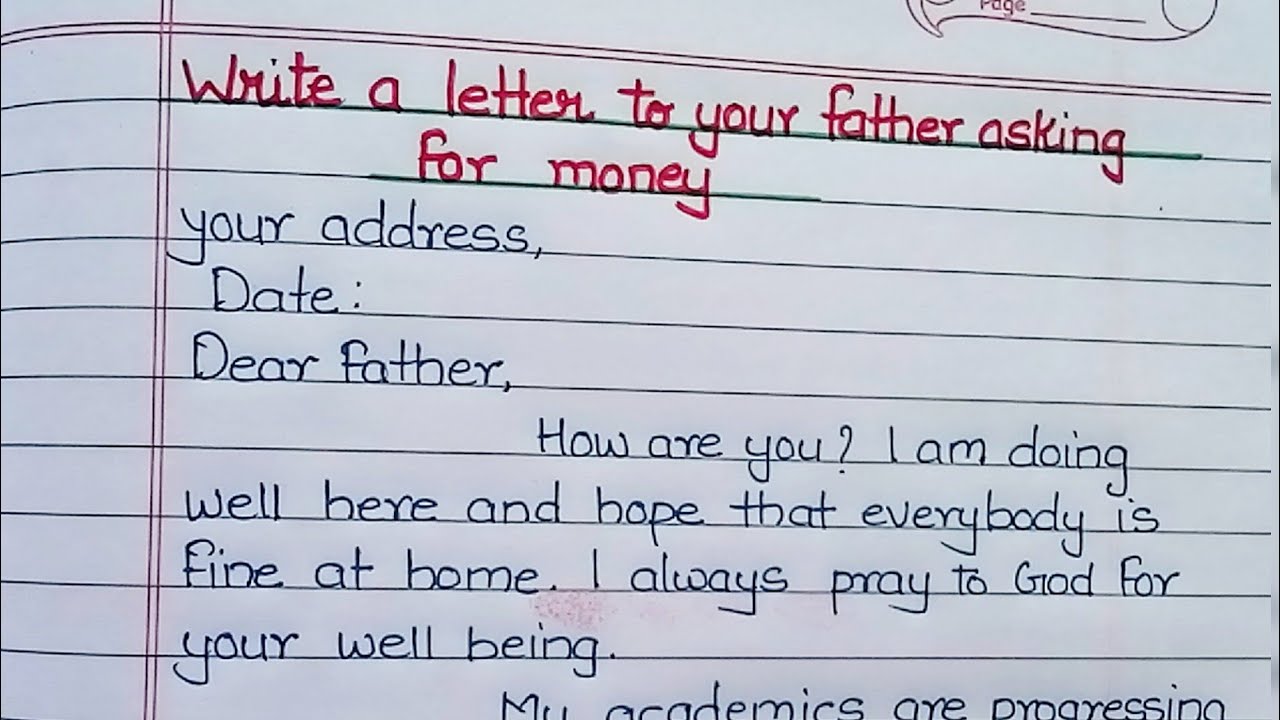 Page
Write a letter to your father asking
for money
your address,
Date:
Dear father,
How are you? I am doing
well here and hope that everybody is
fine at home. I always pray to God for
your well being.
My academics are progressing